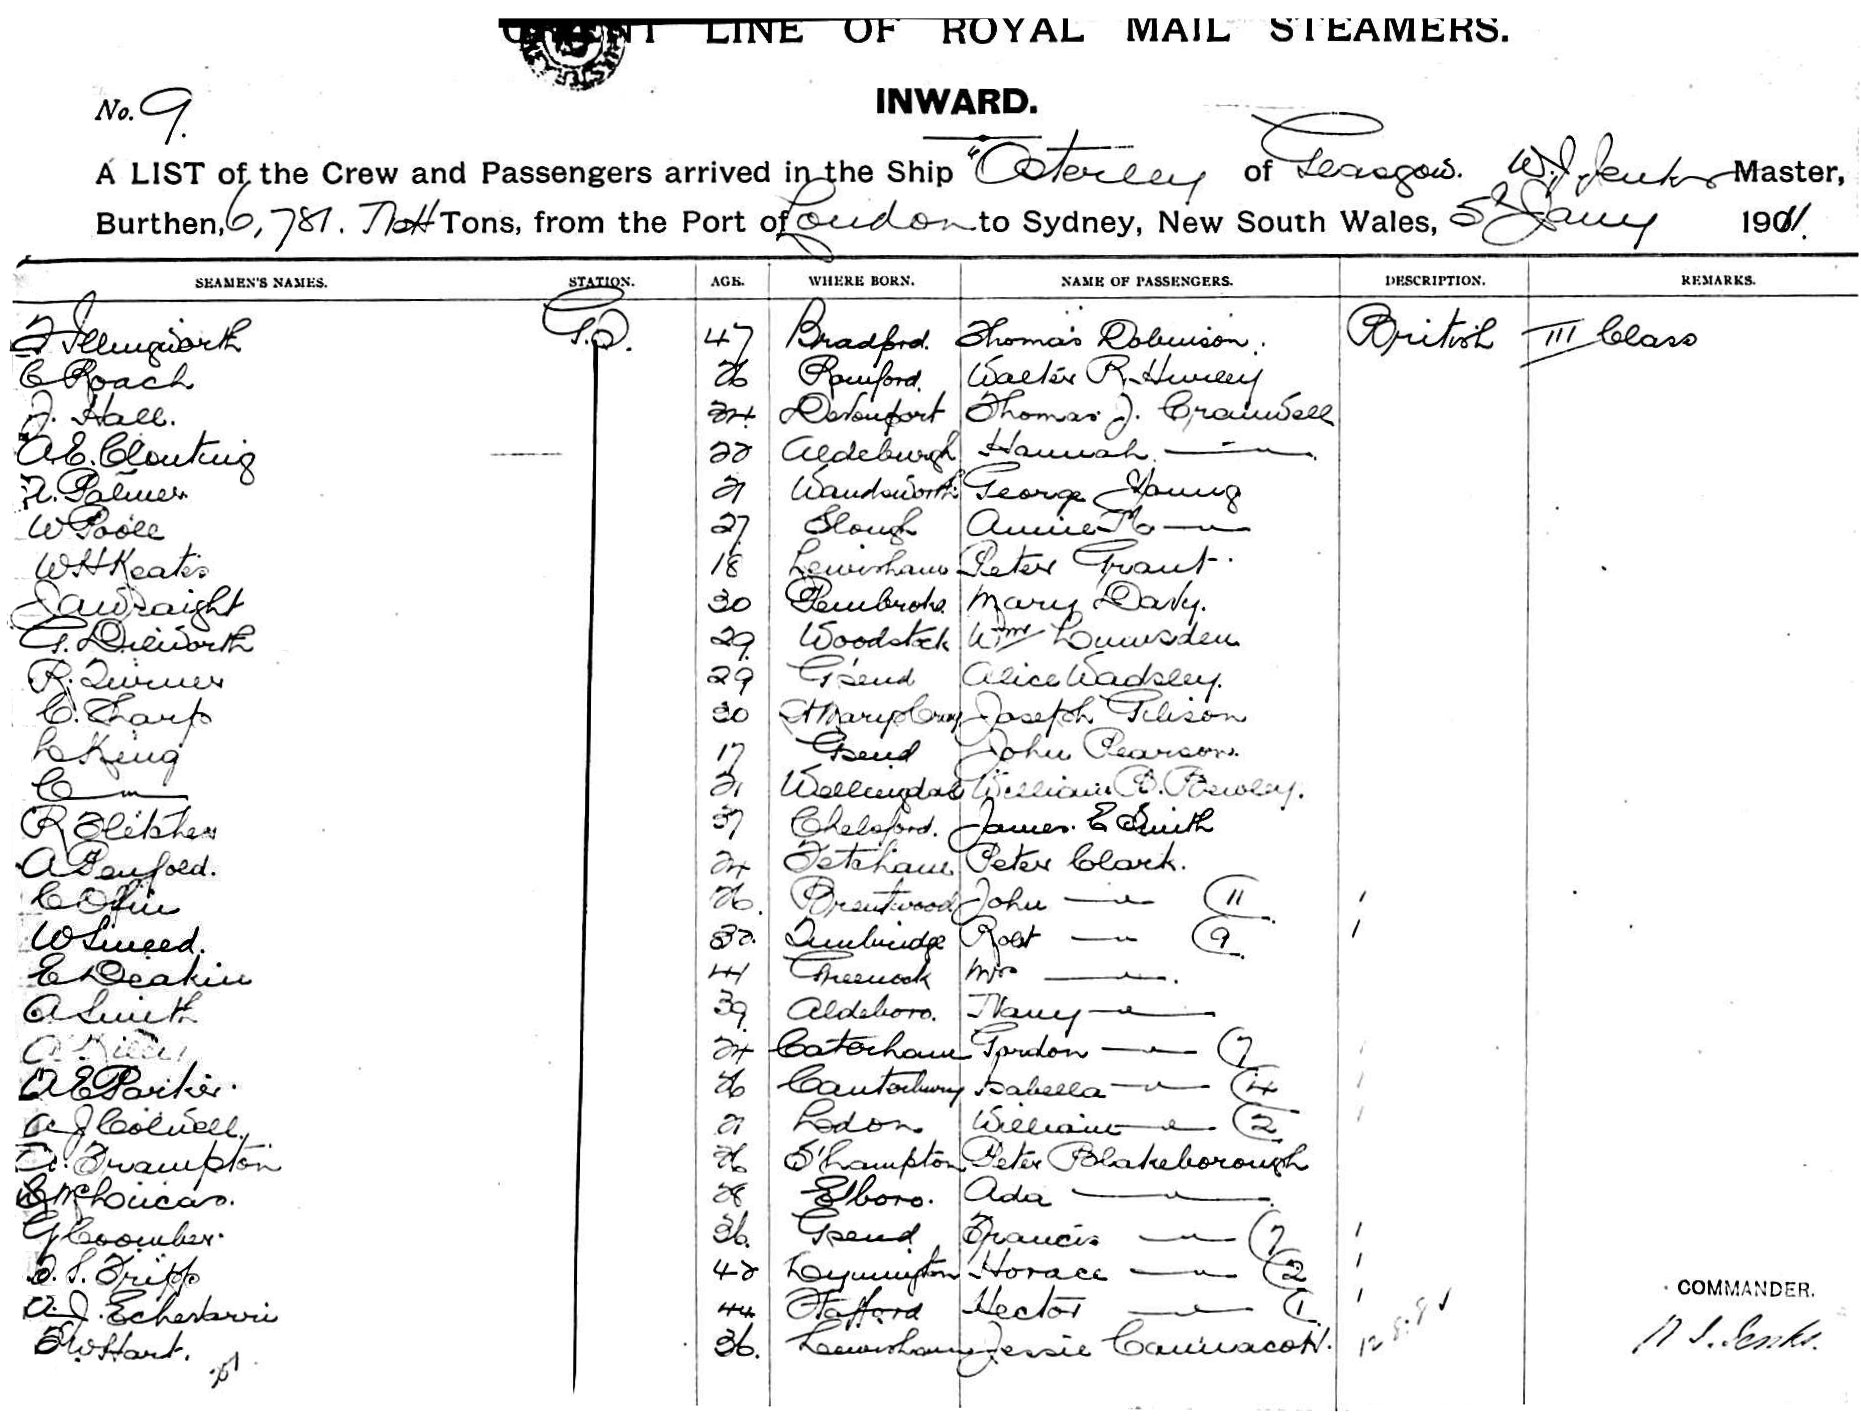 LINE OF ROYAL MAIL STEAMERS.
INWARD.
No. 9.
A LIST of the Crew and Passengers arrived in the Ship "Osterley of Glasgow. W. J. Jenks Master,
Burthen, 6,781. Nett Tons, from the Port of London to Sydney, New South Wales, 5th Jany 1911.
SEAMEN'S NAMES. STATION. AGE. WHERE BORN. NAME OF PASSENGERS. DESCRIPTION. REMARKS.
F Illingworth G.S. 47 Bradford. Thomas Robinson. British III Class
C Roach 26 Romford. Walter R. Hurley
J. Hall. 24 Devonport Thomas J. Cramwell
A.E. Clouting 22 Aldeburgh Hannah —"—
Palmer 21 Wandsworth George Young
W Poole 27 Slough Annie M —"—
W H Keates 18 Lewisham Peter Grant
J A Wraight 30 Pembroke Mary Davy.
G. Dilworth 29 Woodstock Wm Lumsden
R. Turner 29 G'send Alice Wadsley.
C. Sharp 30 St Mary Cray Joseph Gilison
L King 17 G'send John Pearson.
C —"— 21 William B. Bewley.
R Fletcher 37 James E Smith
A Penfold. 24 Fetcham Peter Clark.
C 26. Brentwood John —"— 11
W Sneed. 32. Tunbridge Robt —"— 9
E Deakin 41 Greenock Mrs —"—
A Smith 39 Aldeboro. Mary —"—
A 24 Caterham Gordon —"— 7
A E Parker. 26 Canterbury Isabella —"— 4
A J Colwell. 21 Lodon William —"— 2
Frampton 26 S'hampton Peter Blakeborough
E McLoucas. 28 E'boro. Ada —"—
G Coomber. 36. G'send Francis —"— 7
S. Fripp 42 Lymington Horace —"— 2
A. J. Echevarri 44 Stafford Hector —"— 1
W Hart. 36. Lewisham Jessie Cannacott.
COMMANDER.
J. Jenks.